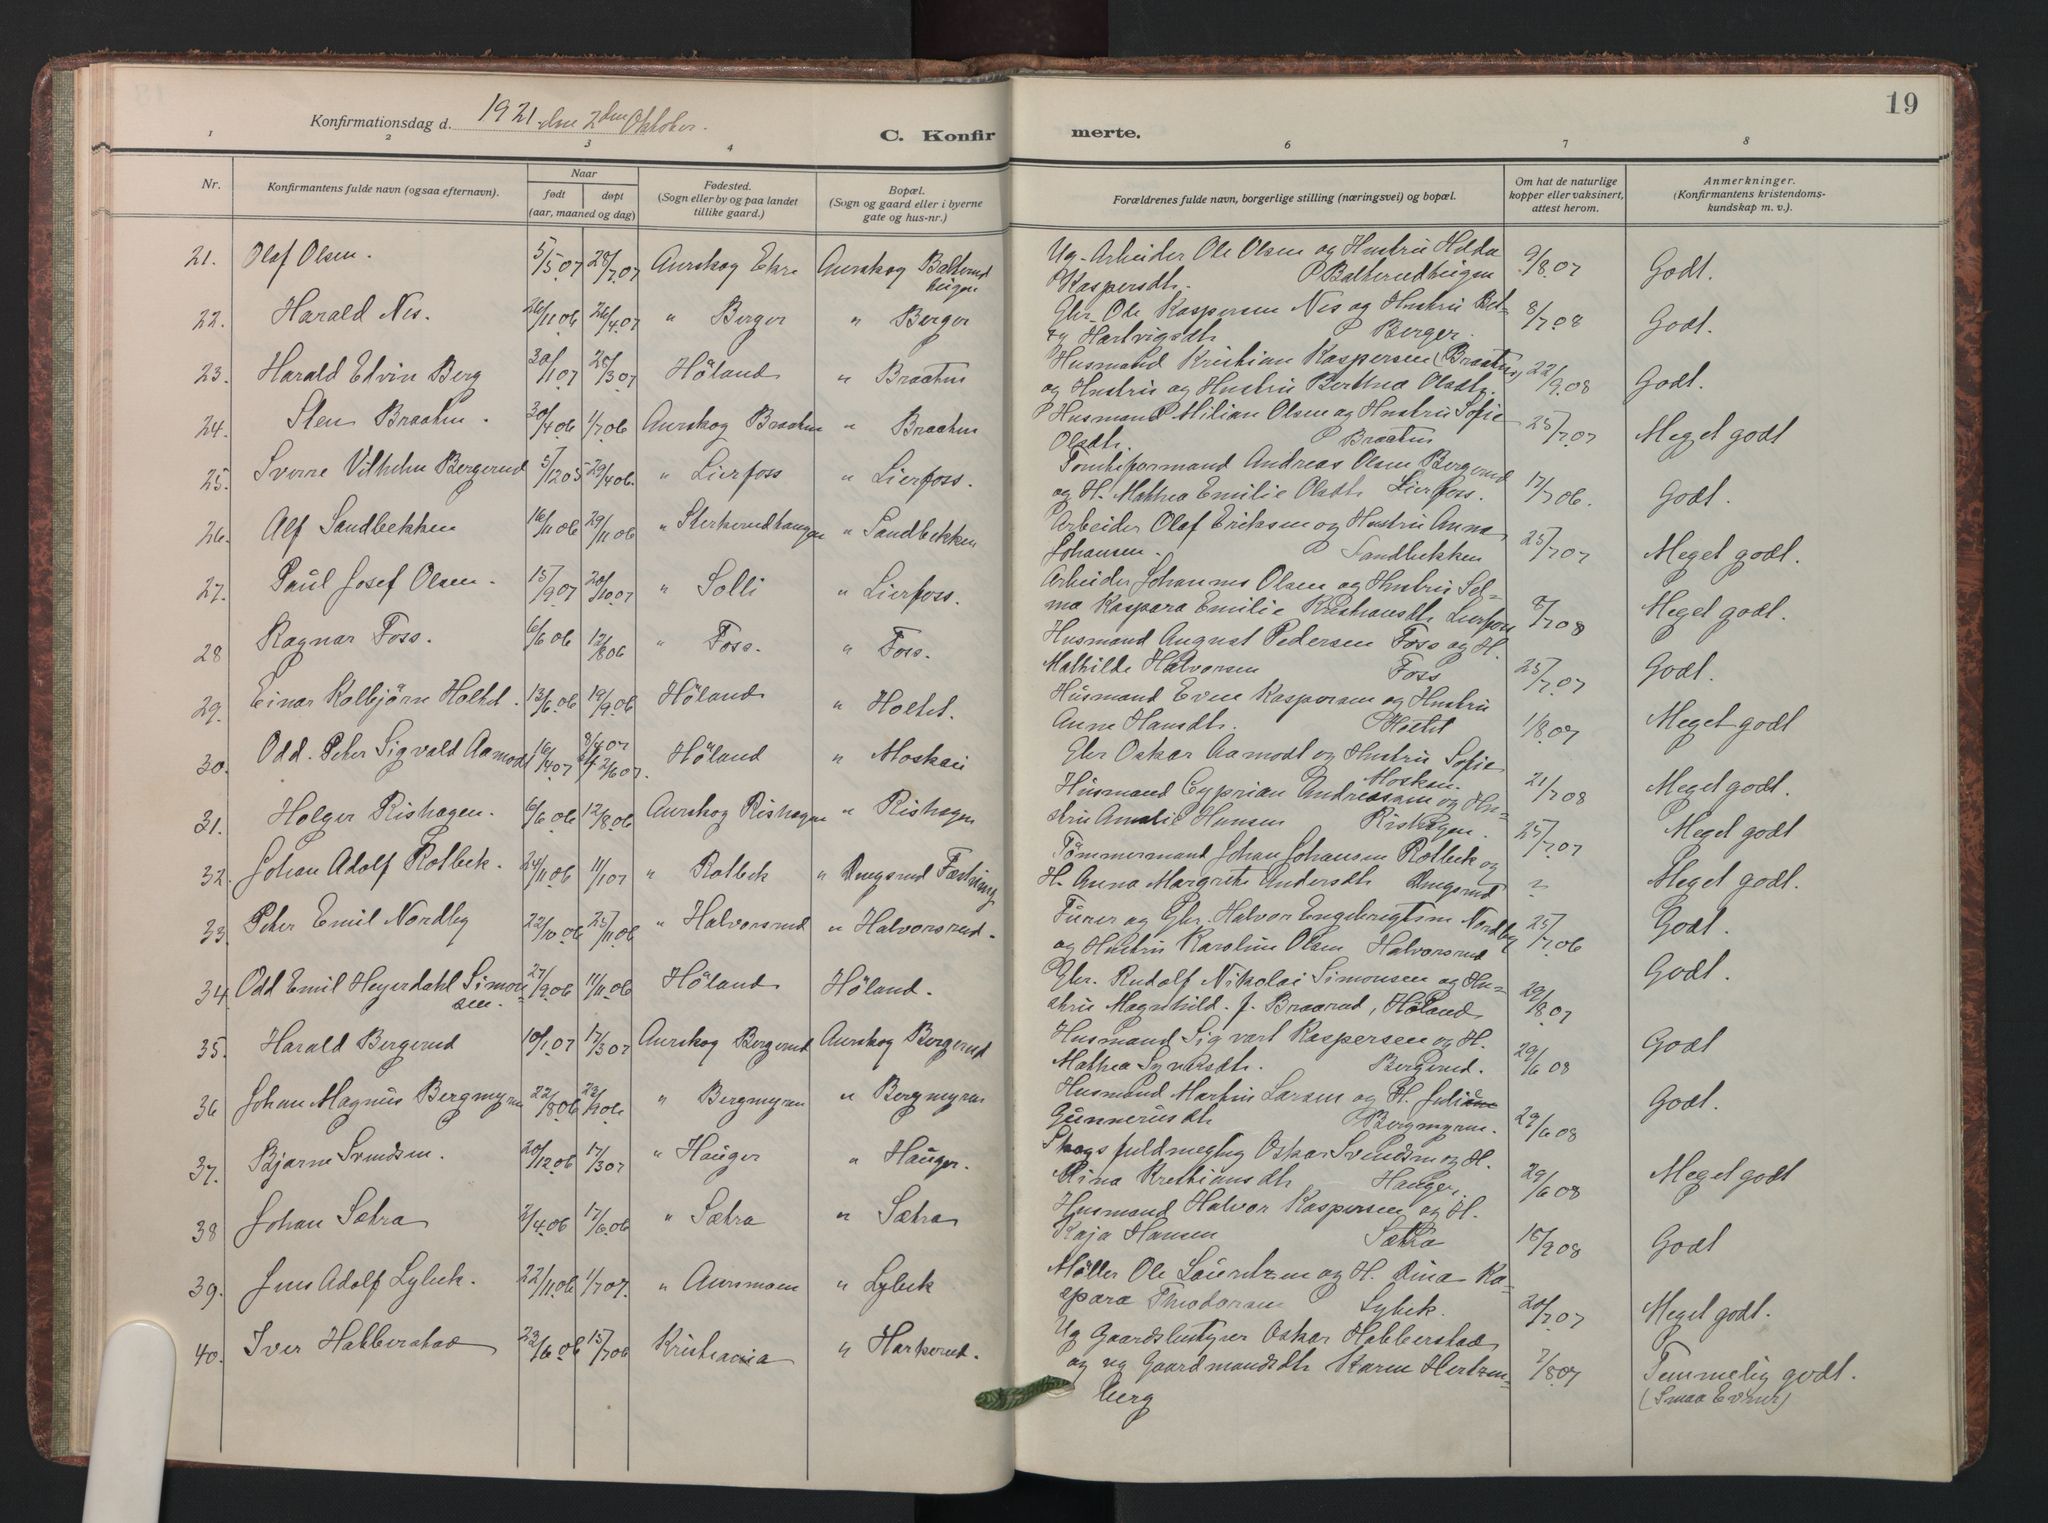 19
Konfirmationsdag d. 1921 den 2den Oktober.
C. Konfirmerte.
1 2 3 4 6 7 8
Nr.
Konfirmantens fulde navn (ogsaa efternavn).
Naar
født
døpt
(aar, maaned og dag)
Fødested.
(Sogn eller by og paa landet
tillike gaard.)
Bopæl.
(Sogn og gaard eller i byerne
gate og hus-nr.)
Forældrenes fulde navn, borgerlige stilling (næringsvei) og bopæl.
Om hat de naturlige
kopper eller vaksinert,
attest herom.
Anmerkninger.
(Konfirmantens kristendoms-
kundskap m. v.).
21. Olaf Olsen. 5/5.07 28/7.07 Aurskog Ekre Aurskog Balterud heigen Ug. Arbeider Ole Olsen og Hustru Hilda
Kaspersdtr. Balterudheigen 9/8.07 Godt.
22. Harald Nes. 26/11.06 26/4.07 " Berger " Berger Gbr. Ole Kaspersen Nes og Hustru Bet-
zy Hartvigsdtr. Berger. 8/7.08 Godt.
23. Harald Edvin Berg 30/1.07 28/3.07 Höland " Braaten Husmand Kristian Kaspersen (Braaten)
og Hustru og Hustru Berthea Olsdtr. 22/9.08 Godt.
24. Sten Braaten. 30/4.06 1/7.06 Aurskog Braaten " Braaten Husmand Milian Olsen og Hustru Sofie
Olsdtr. Braaten 25/7.07 Meget godt
25. Sverre Vilhelm Bergerud 5/12.05 29/4.06. " Lierfoss " Lierfoss. Tomteformand Andreas Olsen Bergerud
og H. Mathea Emilie Olsdtr Lierfoss. 17/7.06. Godt.
26. Alf Sandbekken 16/11.06 29/11.06 " Sterkerudhaugen " Sandbekken Arbeider Olaf Eriksen og Hustru Anna
Johansen. Sandbekken 25/7.07 Meget godt.
27. Paul Josef Olsen. 15/9.07 20/10.07 " Solli " Lierfoss. Arbeider Johannes Olsen og Hustru Sel-
ma Kaspara Emilie Kristiansdtr. Lierfoss 8/7.08 Meget godt.
28 Ragnar Foss. 6/6.06 12/8.06 " Foss. " Foss. Husmand August Pedersen Foss og H.
Mathilde Halvorsen Foss 25/7.07 Godt.
29. Einar Kolbjörn Holtet. 13/6.06 19/9.06 Höland " Holtet. Husmand Even Kaspersen og Hustru
Anne Hansdtr. Holtet 1/8.07 Meget godt
30. Odd. Peter Sigvald Aamodt 16/4.07 2/6.07. Höland " Gbr Oskar Aamodt og Hustru Sofie
21/7.08 Meget godt.
31. Holger Rishagen. 6/6.06 12/8.06 Aurskog Rishagen " Rishagen Husmand Cyprian Andreassen og Hu-
stru Amalie Hansen Rishagen. 25/7.07 Meget godt
32. Johan Adolf Rotbek. 24/11.06 1/1.07 " Rotbek " Dingsrud Tømmermand Johan Johansen Rotbek og
H. Anna Margrete Andersdtr Dingsrud ? Meget godt.
33. Peter Emil Nordby 22/10.06 25/11.06 " Halvorsrud " Halvorsrud. Furer og Gbr. Halvor Engebregtsen Nordby
og Hustru Karoline Olsen Halvorsrud 25/7.06 Godt.
34 Odd Emil Heyerdahl Simon-
sen. 27/9.06 11/11.06 Höland Höland. Gbr. Rudolf Nikolai Simonsen og Hu-
stru Magnhild. f. Braarud, Höland 29/8.07 Godt.
35. Harald Bergerud 10/1.07 17/3.07 Aurskog Bergerud Aurskog Bergerud Husmand Sigvart Kaspersen og H.
Mathea Syversdtr. Bergerud. 29/6.08 Godt
36 Johan Magnus Bergmyren 22/8.06 23/9.06 " Bergmyren " Bergmyren Husmand Martin Larsen og H. Juliane
Gunnerusdtr Bergmyren. 29/6.08 Godt.
37. Bjarne Svendsen. 20/12.06 17/3.07 " Hauger " Hauger. Skogsfuldmegtig Oskar Svendsen og H.
Mina Kristiansdtr Hauger. 29/6.08 Meget godt
38 Johan Sætra 2/4.06 17/6.06 " Sætra " Sætra Husmand Halvor Kaspersen og H.
Kaja Hansen Sætra 18/9.08 Godt
39. Jens Adolf Lybek. 22/11.06 1/7.07. " Aursmoen " Lybek Möller Ole Lauritzen og H. Dina Ka-
spara Theodorsen Lybek. 20/7.07 Meget godt.
40. Iver Habberstad 23/6.06 15/7.06 Kristiania " Harkerud. Ug Gaardsbestyrer Oskar Habberstad
og ug Gaardmandsdtr Karen Hertzen-
berg 7/8.07 Temmelig godt.
(Smaa Evner)